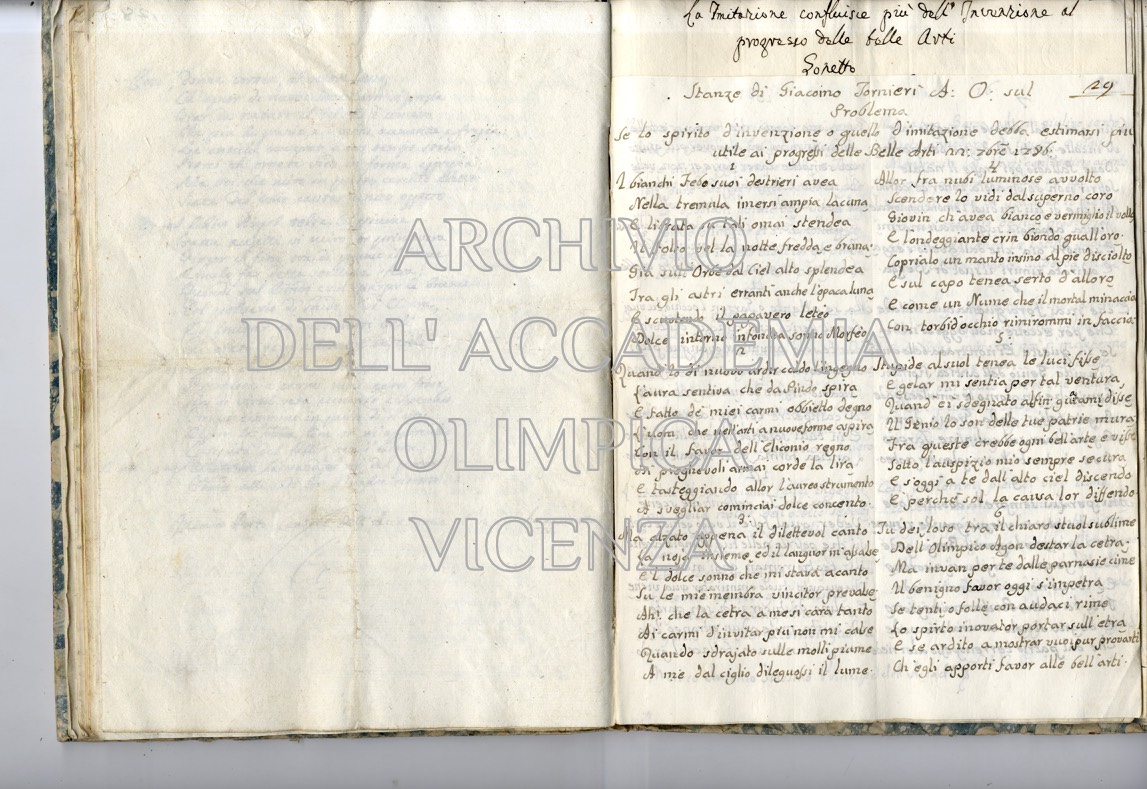 La Imitazione confluisce più dell' Invenzione al
progresso delle belle Arti
Sonetto
Stanze di Giacomo Tornieri A: O: sul
29
Problema.
Se lo spirito d'invenzione o quello d'imitazione debba estimarsi più
utile ai progressi delle Belle Arti 7bre 1786.
1
I bianchi Febo suoi destrieri avea
Nella tremula imersi ampia lacuna
E librata su l'ali omai stendea
Il folto vel la notte fredda, e bruna.
Già sull' Orbe dal Ciel alto splendea
Tra gli astri erranti anche l'opaca luna
E scuotendo il papavero leteo
Dolce intorno infondea sonno Morfeo
2
Quand' io di nuovo ardir caldo l'ingegno
L'aura sentiva che da Pindo spira
E fatto de' miei carmi obbietto degno
L'uom che nell'arti a nuove forme aspira
Con il favor dell' Eliconio regno
Di pieghevoli armai corde la lira
E tasteggiando allor l'aureo stromento
A svegliar comminciai dolce concento.
3
Ma alzato appena il dilettevol canto
La noja insieme ed il languor m'assalse
E'l dolce sonno che mi stava acanto
Su le mie membra vincitor prevalse
Ahi che la cetra a me sì cara tanto
Ai carmi d'invitar più non mi calse
Quando sdrajato sulle molli piume
A me dal ciglio dileguossi il lume.
4
Allor fra nubi luminose avvolto
Scendere lo vidi dal superno coro
Giovin ch'avea bianco e vermiglio il volto
E l'ondeggiante crin biondo qual l'oro.
Coprialo un manto insino al pie disciolto
E sul capo tenea serto d'alloro
E come un Nume che il mortal minaccia
Con torbid'occhio rimirommi in faccia.
5
Stupide al suol tenea le luci fisse
E gelar mi sentia per tal ventura,
Quand' ei sdegnato alfin guatami disse
Il Genio Io son delle tue patrie mura
Fra queste crebbe ogni bell'arte e visse
Sotto l'auspizio mio sempre secura
E s'oggi a te dall' alto ciel discendo
E perchè sol la causa lor diffendo
6
Tu dei, loso, tra il chiaro stuol sublime
Dell' Olimpico Agon destar la cetra.
Ma invan per te dalle parnasie cime
Il benigno favor oggi s'impetra
Se tenti o folle con audaci rime
Lo spirto inovator portar sull' etra
E se ardito a mostrar vuoi pur provarti
Ch'egli apporti favor alle bell'arti.
ARCHIVIO
DELL' ACCADEMIA
OLIMPICA
VICENZA